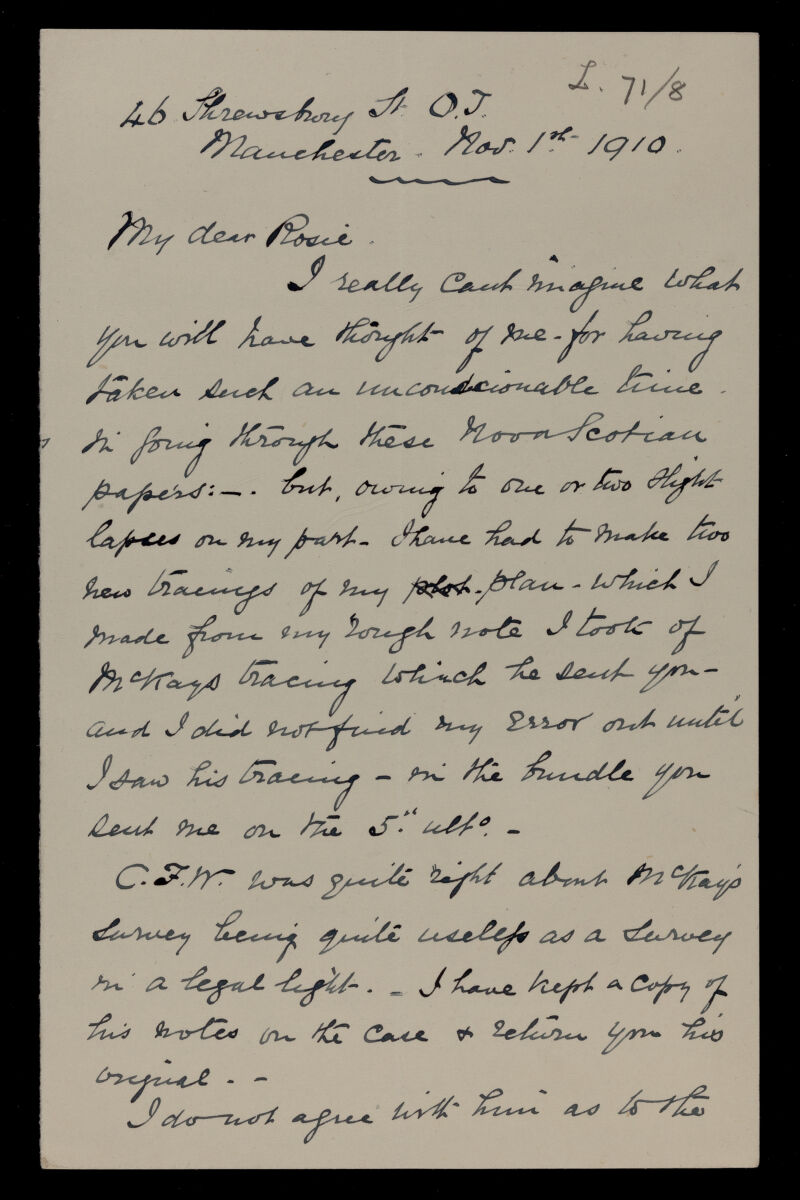 L. 71/8
46 Shrewsbury St. O.T.
Manchester. Nov. 1st 1910.
My dear Rosie.
I really cant imagine what
you will have thought of me - for having
taken such an unconscionable time.
in going through these Nova Scotian
papers:-. but, owing to one or two slight
lapses on my part - I have had to make two
new tracings of my plot - plan - which I
made from my rough note I took of
McKays tracing which he sent you -
and I did not find my Error out until
I saw his tracing - in the bundle you
sent me on the 5." ulto. -
C.F.W. was quite right about McKay's
survey being quite useless as a survey
in a legal light. - I have kept a copy of
his notes on the case & return you his
original. - 
I do not agree with him as to the